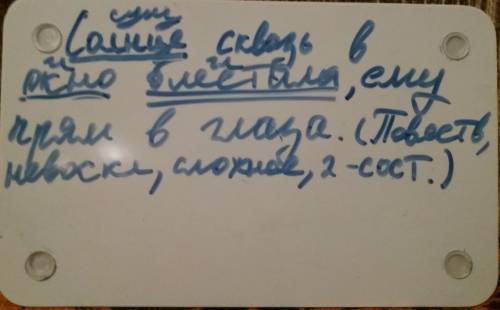 сущ
Солнце сквозь в
окно блестала, ему
прям в глаза. (Повеств,
невоскл, сложное, 2-сост.)